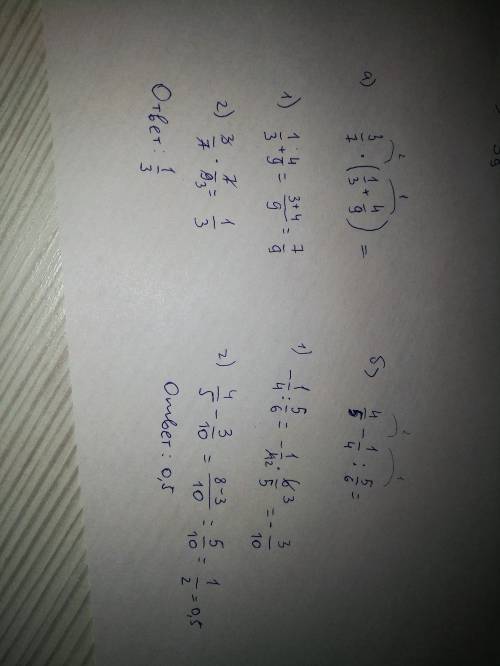 а) 3/7 · (1/3 + 4/9) =
1) 1/3 + 4/9 = 3+4/9 = 7/9
2) 3/7 · 7/9 3 = 1/3
Ответ: 1/3
б) 4/5 - 1/4 : 5/6 =
1) - 1/4 : 5/6 = - 1/4 2 · 6 3/5 = - 3/10
2) 4/5 - 3/10 = 8-3/10 = 5/10 = 1/2 = 0,5
Ответ: 0,5